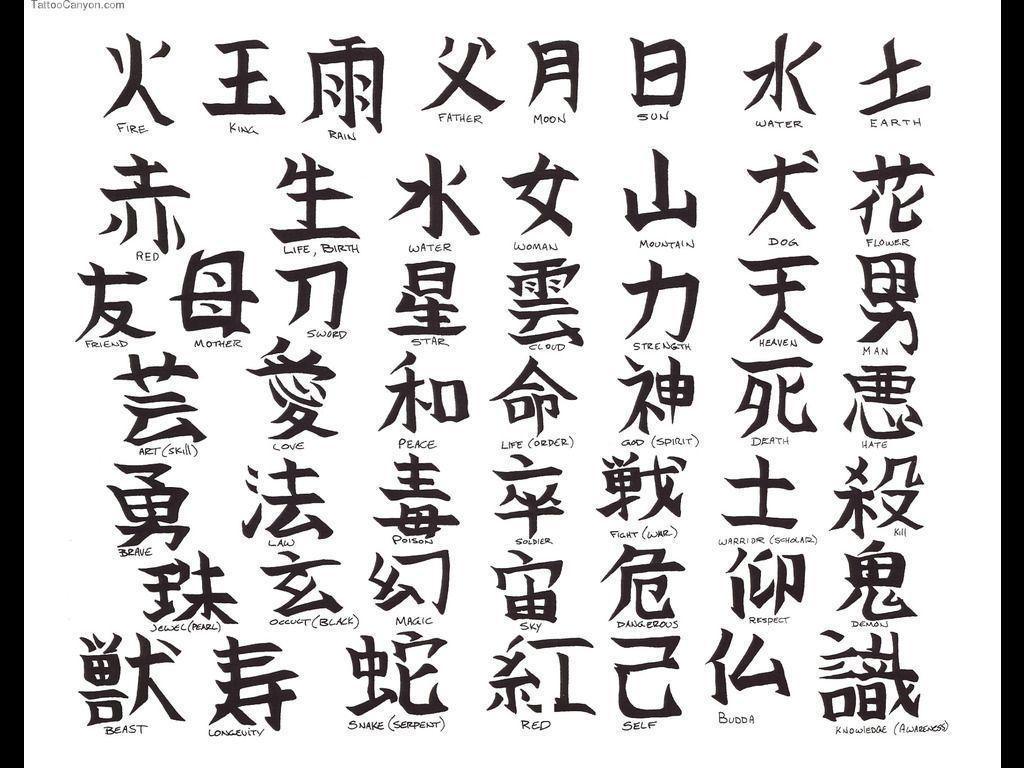 TattooCanyon.com
火 王 雨 父 月 日 水 土
FIRE KING RAIN FATHER MOON SUN WATER EARTH
赤 生 水 女 山 犬 花
RED LIFE, BIRTH WATER WOMAN MOUNTAIN DOG FLOWER
友 母 刀 星 雲 力 天 男
FRIEND MOTHER SWORD STAR CLOUD STRENGTH HEAVEN MAN
芸 愛 和 命 神 死 悪
ART (SKill) LOVE PEACE LIFE (ORDER) GOD (SPIRIT) DEATH HATE
勇 法 毒 卒 戦 士 殺
BRAVE LAW POISON SOLDIER FIGHT (WAR) WARRIOR (SCHOLAR) Kill
珠 玄 幻 宙 危 仰 鬼
JEWEL (PEARL) OCCULT (BLACK) MAGIC SKY DANGEROUS RESPECT DEMON
獣 寿 蛇 紅 己 仏 識
BEAST LONGEVITY SNAKE (SERPENT) RED SELF BUDDA KNOWLEDGE (AWARENESS)